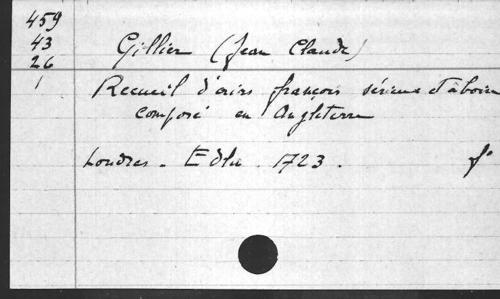 459
43
26
1
Gillier (Jean Claude)
Recueil d'airs françois sérieux & à boire
composé en Angleterre
Londres. 1723. f°